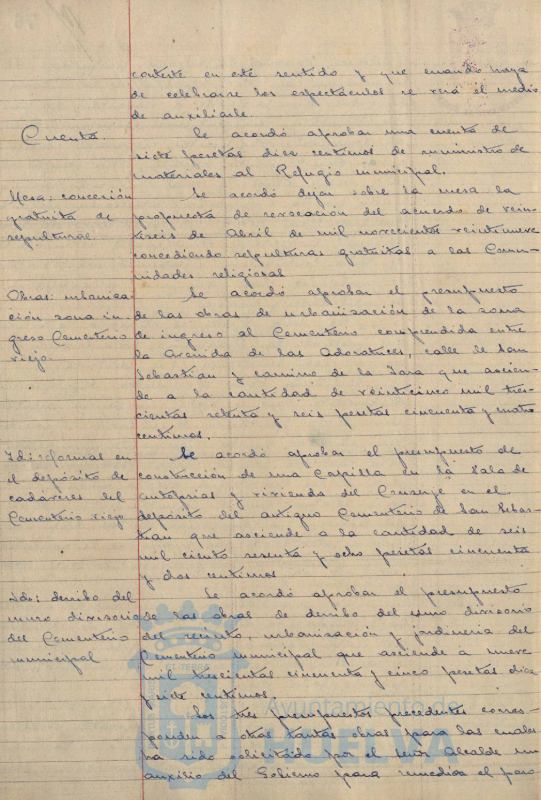 conteste en este sentido y que cuando haya
de celebrarse los espectáculos se verá el medio
de auxiliarle.
Cuenta.
Se acordó aprobar una cuenta de
siete pesetas diez centimos de suministro de
materiales al Refugio municipal.
Mesa: concesión
gratuita de
sepulturas.
Se acordó dejar sobre la mesa la
propuesta de revocación del acuerdo de vein-
tiseis de Abril de mil novecientos veintinueve
concediendo sepulturas gratuitas a las Comu-
nidades religiosas
Obras: urbaniza-
ción zona in-
greso Cementerio
viejo.
Se acordó aprobar el presupuesto
de las obras de urbanización de la zona
de ingreso al Cementerio comprendida entre
la Avenida de las Adoratrices, calle de San
Sebastian y camino de la Jara que ascien-
de a la cantidad de veinticinco mil tres-
cientas setenta y seis pesetas cincuenta y cuatro
centimos.
Id: reformas en
el depósito de
cadáveres del
Cementerio viejo
Se acordó aprobar el presupuesto de
construcción de una Capilla en la Sala de
autopsias y vivienda del Conserje en el
depósito del antiguo Cementerio de San Sebas-
tian que asciende a la cantidad de seis
mil ciento sesenta y ocho pesetas cincuenta
y dos centimos
Ide: derribo del
muro divisorio
del Cementerio
municipal
Se acordó aprobar el presupuesto
de las obras de derribo del muro divisorio
del recinto, urbanización y jardineria del
Cementerio municipal que asciende a nueve
mil trescientas cincuenta y cinco pesetas diez
y siete centimos.
Los tres presupuestos precedentes corres-
ponden a otras tantas obras para las cuales
ha sido solicitado por el señor Alcalde un
auxilio del Gobierno para remediar el paro
Ayuntamiento de
HUELVA